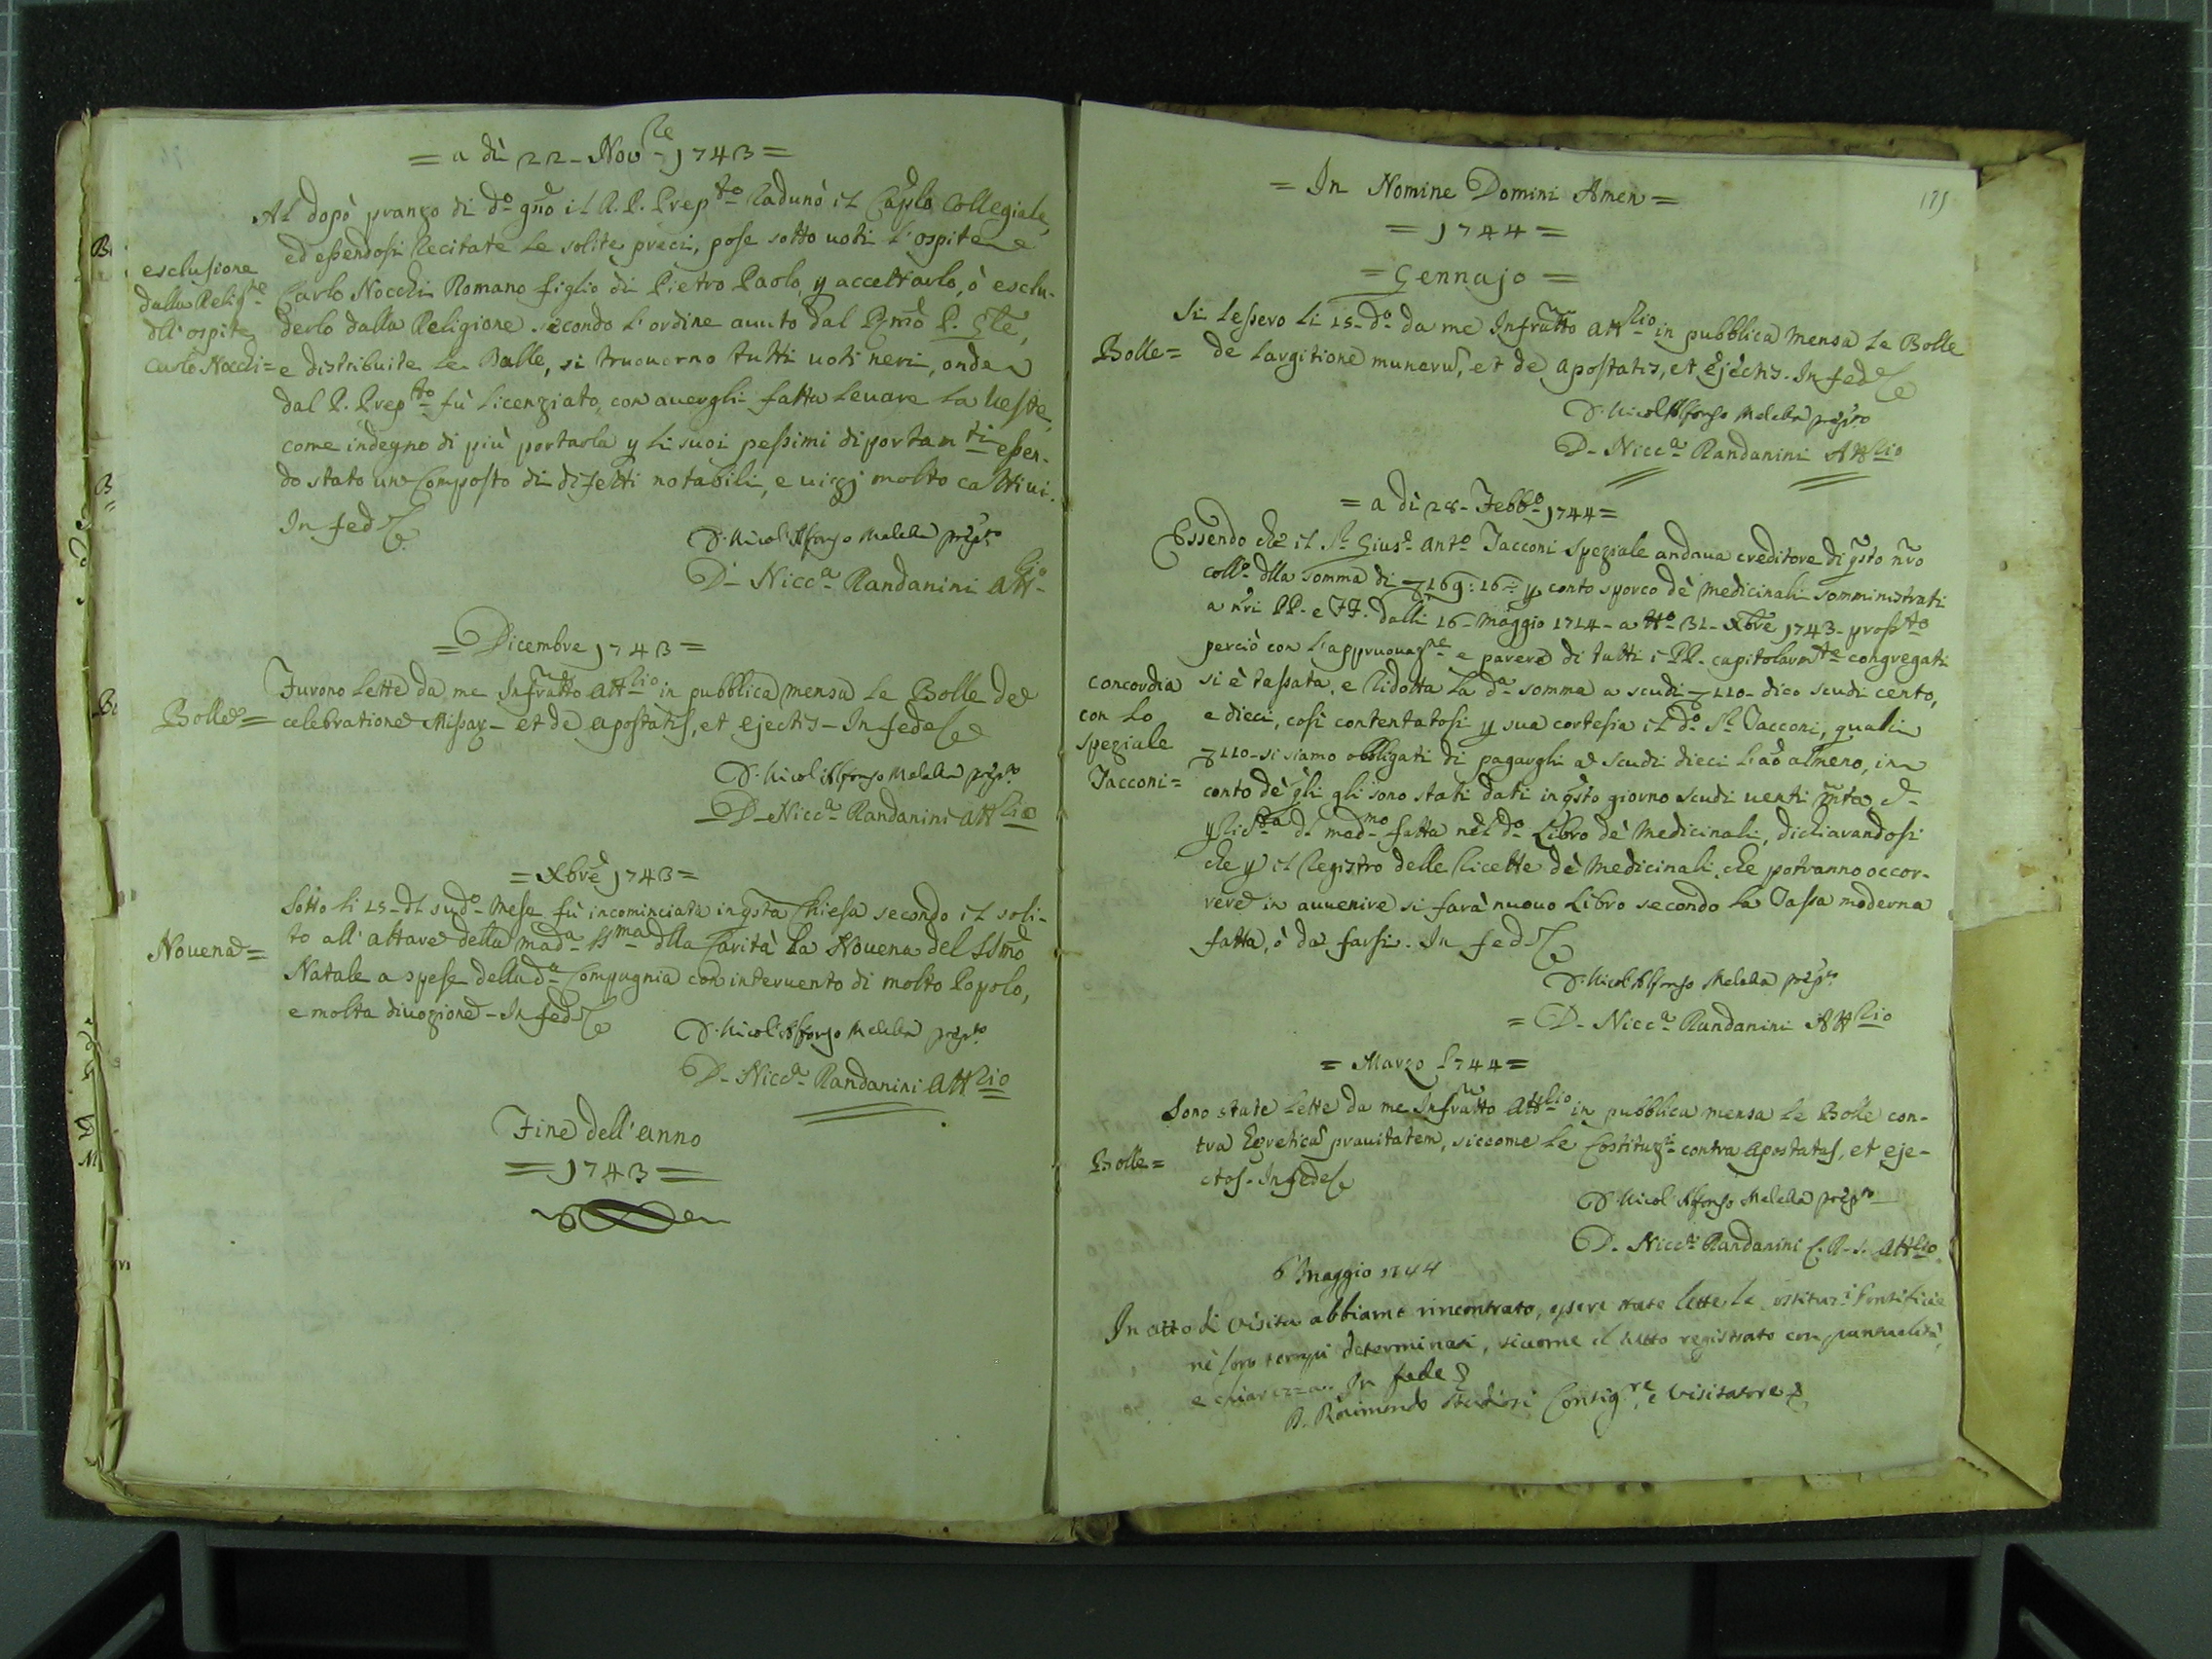 = a dì 22 - Nov.re 1743 =
Al dopò pranzo di do. gño il R. P. Prep.to radunò il Caplo Collegiale,
ed essendosi recitate le solite preci, pose sotto uoti l'ospite
esclusione
dalla Relig.ne
dll'ospite
Carlo Nocchi =
Carlo Nocchi Romano figlio di Pietro Paolo, p accettarlo, ò esclu-
derlo dalla Religione secondo l'ordine auuto dal Rmo P. Gle,
e distribuite le Balle, si truouorno tutti uoti neri, onde
dal P. Prep.to fù licenziato, con auergli fatta leuare la ueste,
come indegno di più portarla p li suoi pessimi diportam.ti essen-
do stato un composto di difetti notabili, e uizj molto cattiui.
In fede
D. Nicol'Alfonso Melella prep.to
D. Nicc.a Randanini Att.rio
= Dicembre 1743 =
Bolle =
Furono lette da me Infratto att.rio in pubblica mensa le Bolle de
celebratione Missar - et de apostatis, et ejectis - In fede
D. Nicol'Alfonso Melella prep.to
D. Nicc.a Randanini att.rio
= Xbre 1743 =
Nouena =
Sotto li 15 - dl sudo. mese fù incominciata in qsta Chiesa secondo il soli-
to all'altare della mada. SS.ma dlla Carità la Nouena del SSmo
Natale a spese della da. Compagnia con interuento di molto Popolo,
e molta diuozione - In fede
D. Nicol'Alfonso Melella prep.to
D. Nicc.a Randanini att.rio
Fine dell'anno
= 1743 =
175
= In Nomine Domini Amen =
= 1744 =
= Gennajo =
Bolle =
Si lessero li 15 - do. da me Infratto att.rio in pubblica mensa le Bolle
de largitione munerũ, et de apostatis, et ejectis. In fede
D. Nicol'Alfonso Melella prep.to
D. Nicc.a Randanini Att.rio
= a dì 28 - Febbo. 1744 =
Essendo che il Sr. Gius.e Anto. Jacconi speziale andaua creditore di qsto nro
collo. dlla somma di 169:16 p conto sporco de' medicinali somministrati
a nri PP. e FF. dalli 16 - Maggio 1714 - a tto. 31 - Xbre 1743 - pross.to
perciò con l'appruouaz.ne e parere di tutti i PP. capitolarm.te congregati
concordia
con lo
speziale
Jacconi =
si è tassata, e ridotta la da. somma a scudi 110 - dico scudi cento,
e dieci, così contentatosi p sua cortesia il do. Sr. Jacconi, quali
110 - si siamo obbligati di pagargli a scudi dieci l'aõ almeno, in
conto de' qli gli sono stati dati in qsto giorno scudi uenti
p lista dl mad.mo fatta nel do. Libro de' Medicinali, dichiarandosi
che p il Registro delle ricette de' Medicinali, che potranno occor-
rere in auuenire si farà nuouo Libro secondo la Tassa moderna
fatta, ò da farsi. In fede
D. Nicol'Alfonso Melella prep.to
= D. Nicc.a Randanini Att.rio
= Marzo 1744 =
Bolle =
Sono state lette da me Infratto Att.rio in pubblica mensa le Bolle con-
tra Hereticã prauitatem, siccome le Costituz.ni contra Apostatas, et eje-
ctos. In fede
D. Nicol'Alfonso Melella prep.to
D. Nicc.a Randanini C. R. S. Att.rio
6 Maggio 1744
In atto di visita abbiamo rincontrato, essere state lette le ostituz.i Pontificie
ne' loro tempi determinati, siccome il tutto registrato con puntualità,
e chiarezza. In fede
D. Raimondo Studiosi Consig.re, e Visitatore